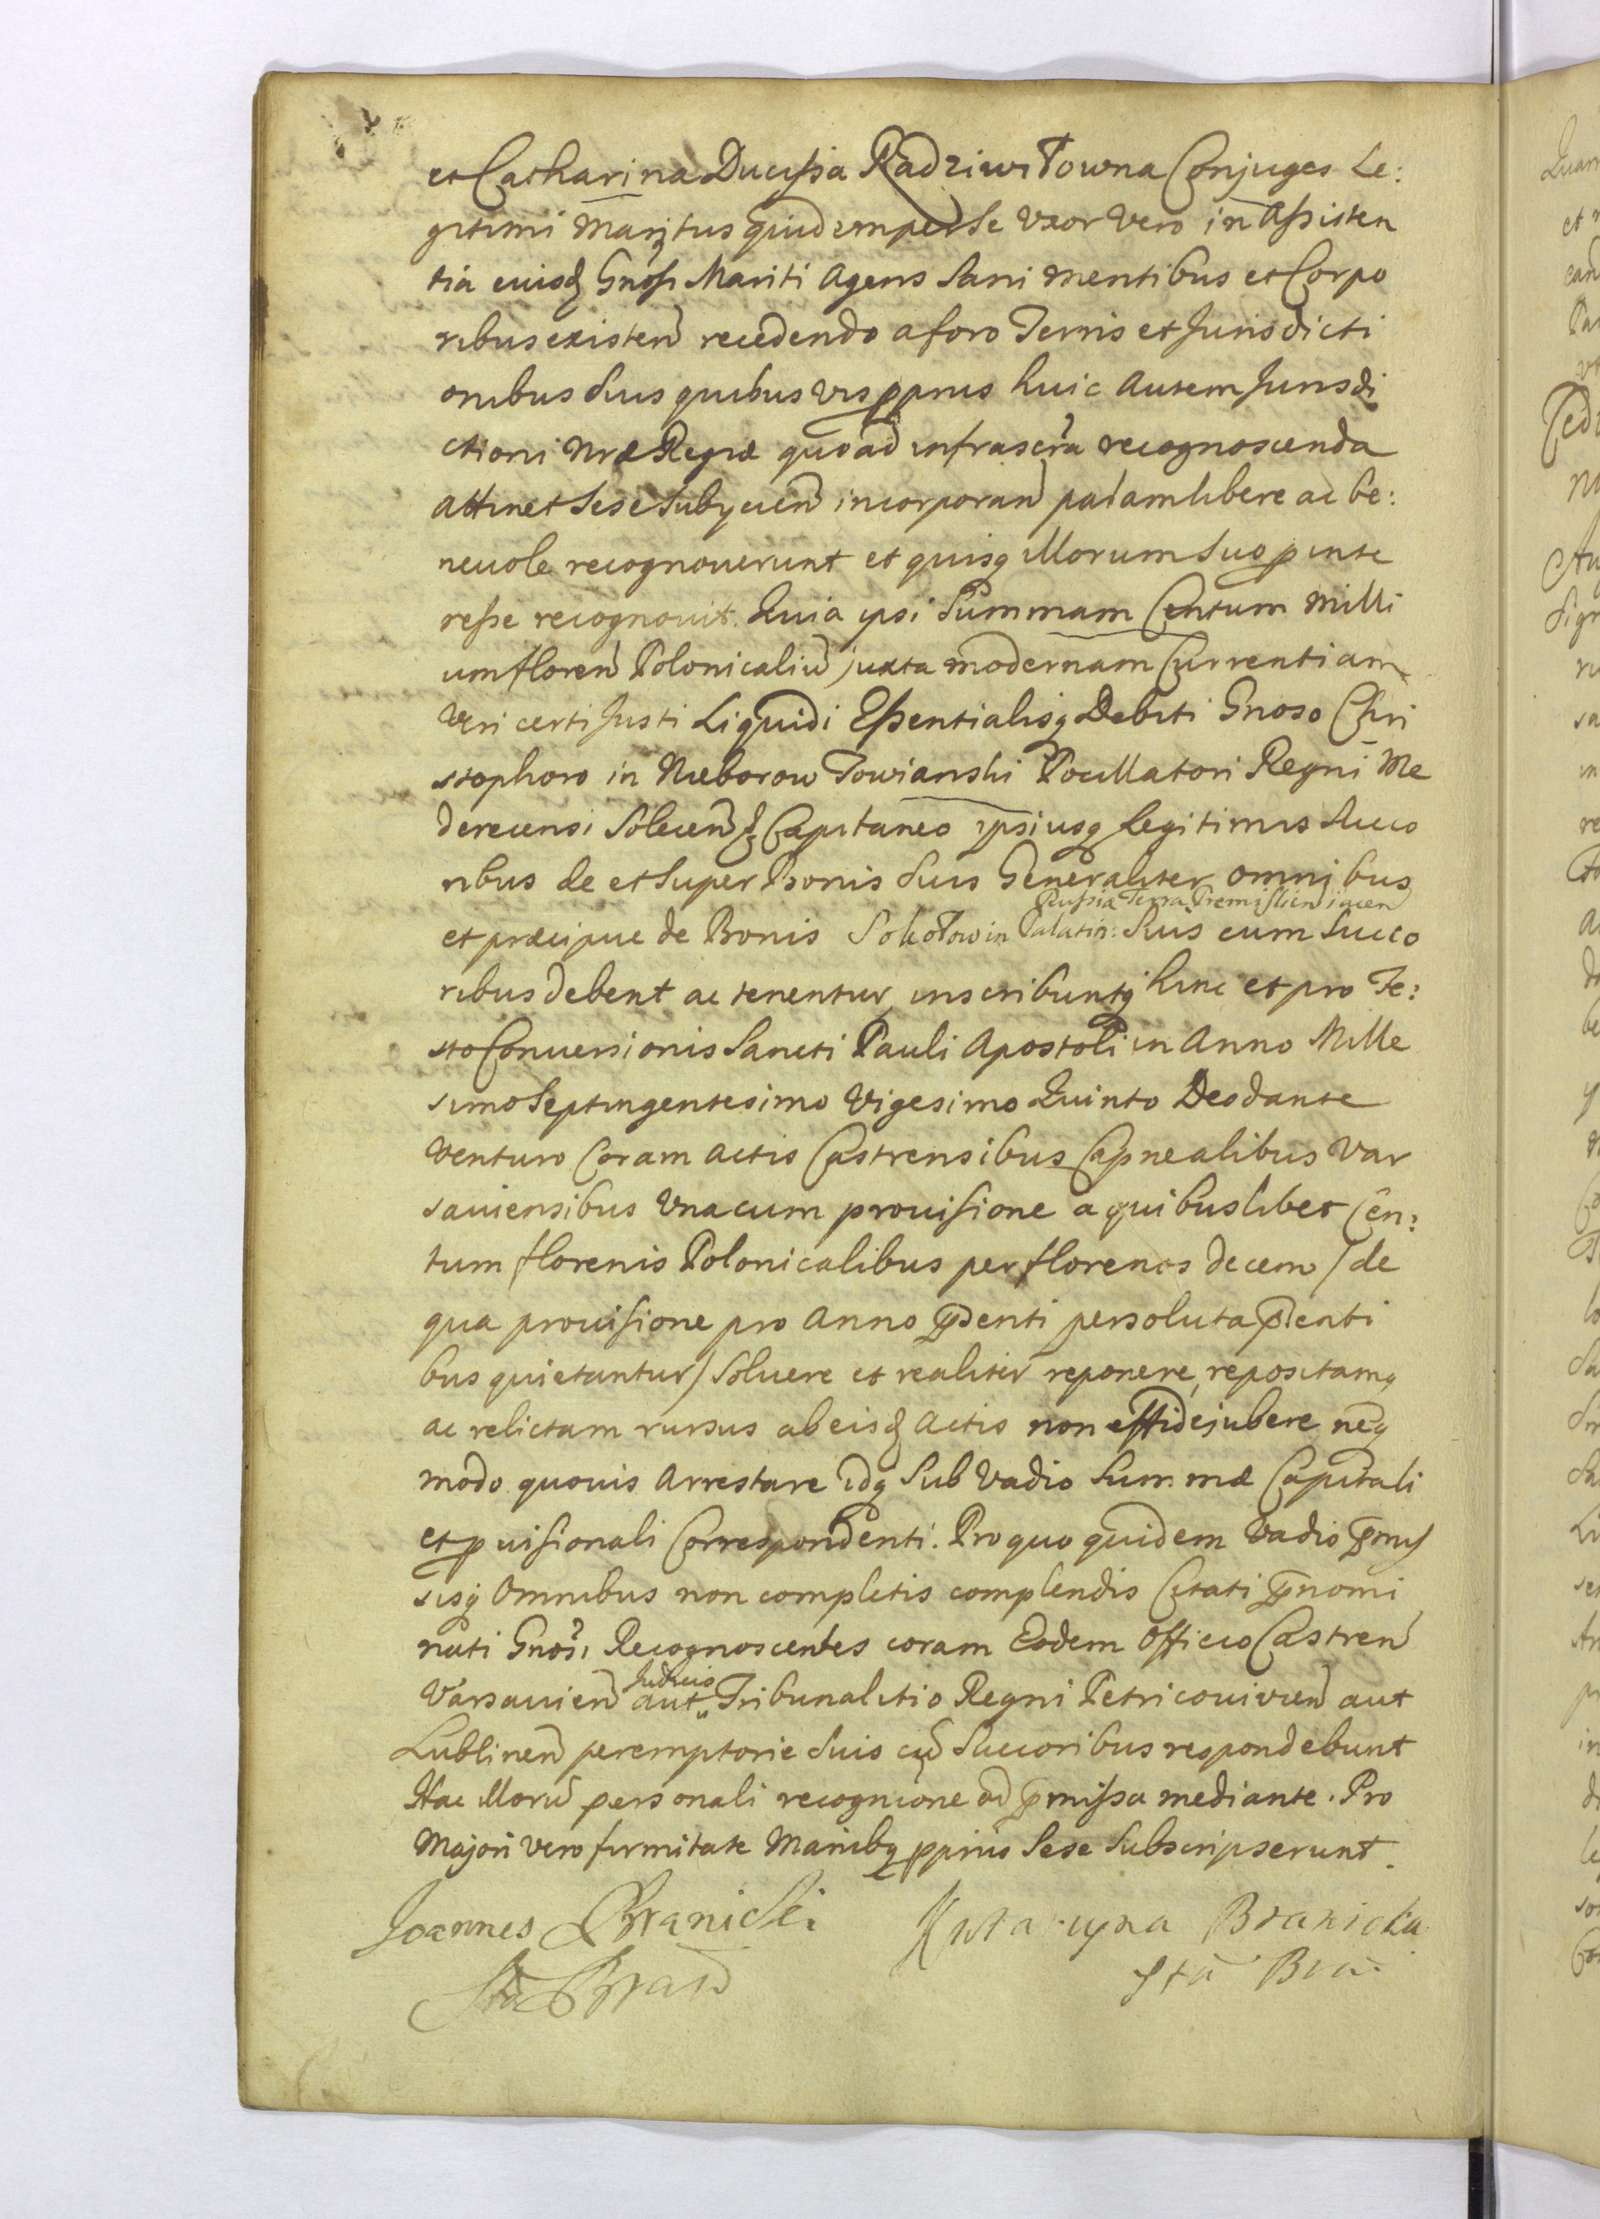 et Catharina Ducißa Radziwiłłowna Conjuges Le:
gitimi Maritus quidem per se Uxor vero in Aßisten
tia eiusd Gnosi Mariti Agens Sani mentibus et Corpo
ribus existen recedendo a foro Terris et Jurisdicti
onibus suis quibusvis pprus huic autem Jurisdi
ctioni Nræ Regiæ quoad infrascra recognoscenda
attinet sese subycien incorporan palam libere ac be:
neuole recognouerunt et quisq illorum suo p inte
reße recognouit. Quia ipsi Summam Centum Milli
um floren Polonicaliu juxta modernam Currentiam
Veri certi Justi Liquidi Eßentialisq Debiti Gnoso Chri
stophoro in Nieborow Towianski Pocillatori Regni Me
derecensi Solecen & Capitaneo ipsiusq legitimis Succo
ribus de et super Bonis suis Generaliter omnibus
Rußiæ Terra Premislien iacen
et præcipue de Bonis Sokołow in Palatin: Suis cum Succo
ribus debent ac tenentur inscribuntq hinc et pro Fe:
sto Conuersionis Sancti Pauli Apostoli in Anno Mille
simo Septingentesimo Vigesimo Quinto Deo dante
venturo Coram actis Castrensibus Capnealibus Var
sauiensibus Una cum prouisione a quibuslibet Cen:
tum florenis Polonicalibus per florenos decem / de
qua prouisione pro Anno psenti persoluta psenti
bus quietantur / Soluere et realiter reponere, repositamq
ac relictam rursus ab eisd Actis non effidejubere neq
modo quouis Arrestare idq sub Vadio Summæ Capitali
et puisionali Correspondenti. Pro quo quidem Vadio pmis
sisq Omnibus non completis complendis Citati pnomi
nati Gnosi Recognoscentes coram Eodem Officio Castren
Judicio
Varsauien aut Tribunalitio Regni Petricouien aut
Lublinen peremptorie suis cu Succoribus respondebunt
Hac illoru personali recognitione ad pmißa mediante. Pro
Majori vero firmitate Manibq ppriis Sese Subscripserunt.
Joannes Branicki Katarzyna Branicka
Sta Bran Sta Bra: